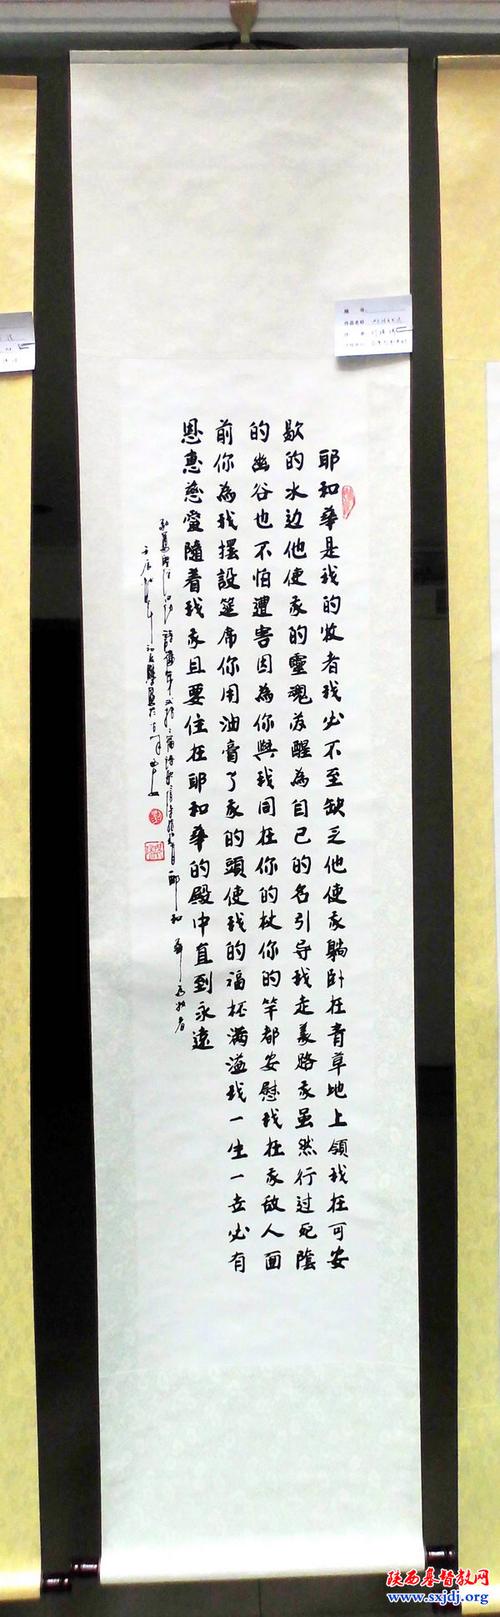 耶和華是我的牧者我必不至缺乏他使我躺卧在青草地上領我在可安
歇的水边他使我的靈魂苏醒為自己的名引导我走義路我虽然行过死陰
的幽谷也不怕遭害因為你與我同在你的杖你的竿都安慰我在我敌人面
前你為我擺設筵席你用油膏了我的頭使我的福杯满溢我一生一世必有
恩惠慈愛隨着我我且要住在耶和華的殿中直到永遠
作品名称
陕西基督教网
www.sxjdj.org